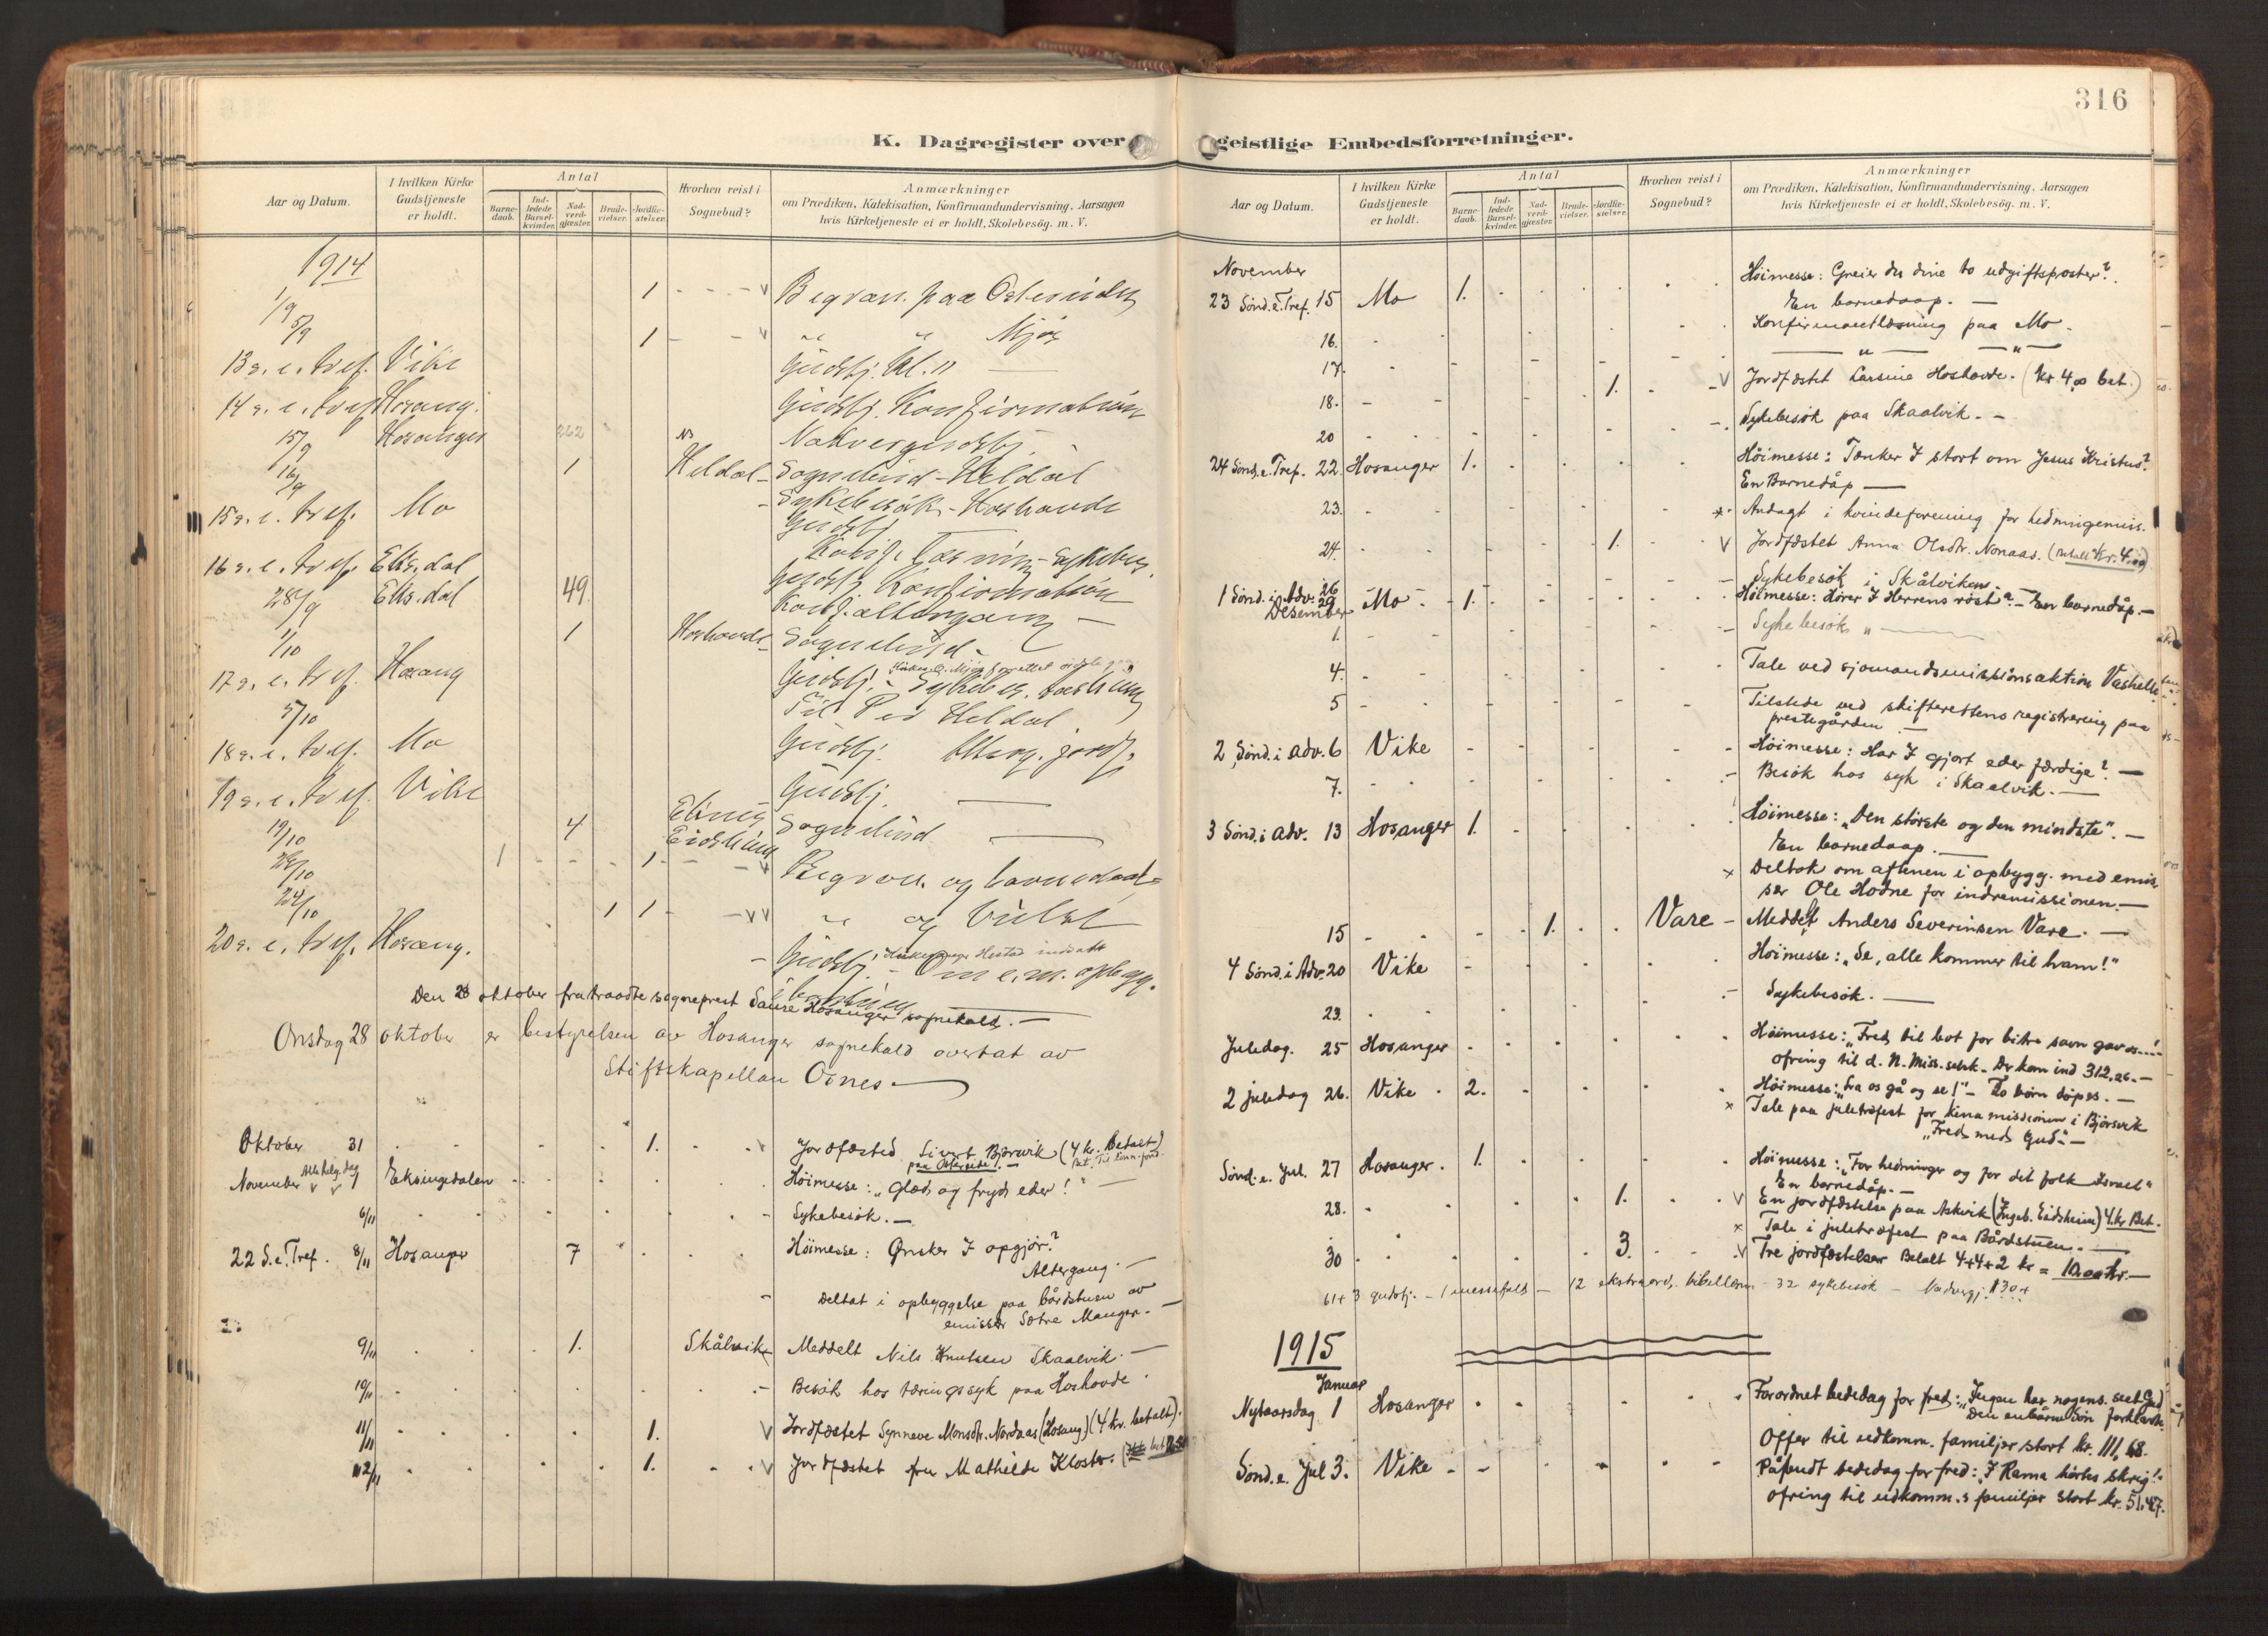 316
K. Dagregister over geistlige Embedsforretninger.
Aar og Datum.
I hvilken Kirke Gudstjeneste er holdt.
Antal
Barnedaab.
Indledede Barselkvinder.
Nadverdgjæster.
Brudevielser.
Jordfæstelser.
Hvorhen reist i Sognebud?
Anmærkninger
om Prædiken, Katekisation, Konfirmandundervisning, Aarsagen
hvis Kirketjeneste ei er holdt, Skolebesög. m. V.
1914
1/9 1 - - - v Begrav. paa Ostereidet
5/9 1 - - v " " Mjøs
13 s. e. tref. Vike Gudstj. kl. 11
14 s. e. tref Hosang. Gudstj. Konfirmation
15/9 Hosanger 262 Nadvergudstj.
16/9 1 Heldal - Sognebud - Heldal
- Sykebesøk - Hoshovde
15 s. e. tref. Mo Gudstj.
Konf. læsning - Sykebes.
16 s. e. tref. Eks.dal Gudstj. Konfirmation
28/9 Eks.dal 49 Konf. altergang -
1/10 1 Hoshovde - Sognebud -
17 s. e. tref. Hosang Gudstj. - Sykebes.
5/10 Til Per Heldal
18 s. e. tref. Mo Gudstj.
19 s. e. tref. Vike Gudstj. —
19/10 4 Eidsheim Sognebud —
1 - - - 1 - - v Begrav. og barnedaab
24/10 1 1 - - v v " og Vielse
20 s. e. tref. Hosang. - Gudstj. - Om e.m. opbygg.
Den 28 oktober fratraadte sogneprest Saure Hosanger sognekald. —
Onsdag 28 oktober er bestyrelsen av Hosanger sognekald overtat av
Stiftskapellan Osnes —
Oktober 31 1. v Jordfæsted Sivert Bjørsvik (4 kr. betalt)
paa Ostereidet. —
November Alle helg. dag 1 Eksingedalen Höimesse: "Glæd og fryd eder!" —
6/11 - Sykebesök. —
22 S. e. Tref. 8/11 Hosanger 7 Höimesse: Ønsker I opgjör?
Altergang. —
- Deltat i opbyggelse paa bårdstuen av
emissær Sætre Manger. —
9/11 1. Skålvik - Meddelt Nils Knutsen Skaalvik. —
10/11 - Besök hos tæringssyk paa Hoshovde.
11/11 1. v Jordfæstet Synneve Monsdtr. Nordaas (Hosang) (4 kr. betalt).
12/11 1. v Jordfæstet fru Mathilde Kloster.
Aar og Datum.
I hvilken Kirke Gudstjeneste er holdt.
Antal
Barnedaab.
Indledede Barselkvinder.
Nadverdgjæster.
Brudevielser.
Jordfæstelser.
Hvorhen reist i Sognebud?
Anmærkninger
om Prædiken, Katekisation, Konfirmandundervisning, Aarsagen
hvis Kirketjeneste ei er holdt, Skolebesög. m. V.
November
23 Sönd. e. Tref. 15 Mo 1. Höimesse: Greier du dine to udgiftsposter?
En barnedaap. —
16. Konfirmantlæsning paa Mo.
17. — " — — " —
18. 1. v Jordfæstet Larsine Hoshovde. (kr 4,00 bet.)
20 - Sykebesök paa Skaalvik. -
24 Sönd. e. Tref. 22. Hosanger 1. Höimesse: Tænker I stort om Jesus Kristus?
En Barnedåp —
23. x Andagt i kvindeforening for hedningemiss.
24. 1. v Jordfæstet Anna Olsdtr. Nonaas. (betalt Kr. 4.00)
26 - Sykebesök i Skålviken.
1 Sönd. i Adv. 29 Mo 1. Höimesse: Hörer I Herrens röst? - En barnedåp. —
Desember
1. - Sykebesök " —
4. Tale ved sjömandsmissionsauktion
5 Tilstede ved skifterettens registrering paa
prestegården —
2 Sönd. i adv. 6 Vike Höimesse: Har I gjort eder færdige? —
7. - Besök hos syk i Skaalvik. —
3 Sönd. i adv. 13 Hosanger 1. Höimesse: "Den störste og den mindste". —
En barnedaap. —
x Deltok om aftenen i opbygg. med emis
sær Ole Hodne for indremissionen. —
15 1. Vare - Meddelt Anders Severinsen Vare. —
4 Sönd. i Adv. 20 Vike Höimesse: "Se, alle kommer til ham!"
23. - Sykebesök. —
Juledag. 25 Hosanger Höimesse: "Fred til bot for bitre savn gav os....!"
Ofring til d. N. Miss.selsk. Der kom ind 312,26. —
2 juledag 26. Vike 2. Höimesse: "Lra os gå og se!" - To börn döpes. —
x Tale paa juletræfest for Kinamissionen i Bjørsvik
"Fred med Gud" —
Sönd. e. Jul. 27 Hosanger 1. Höimesse: "For hedninger og for det folk Israel"
En barnedåp. —
28. 1. v En jordfæstelse paa Askvik (Ingeb. Eidsheim) 4 kr Bet.
x Tale i juletræfest paa Bårdstuen. —
30 3. v Tre jordfæstelser Betalt 4+4+2 kr = 10.00 kr. —
61 + 3 gudstj. - 1 messefald - 12 ekstraord. bibellæsn - 32 sykebesök
1915
Januar
Nytaarsdag 1 Hosanger Forordnet bededag for fred: "Ingen har nogensi. seet Gud
Den enbårne Sön forklarte
Offer til nödkomm. familjer stort kr. 111,68.
Sönd. e. Jul 3. Vike Påbudt bededag for fred: "I Rama hörtes skrig!"
ofring til nödkomm.s familjer stort kr. 51,47.